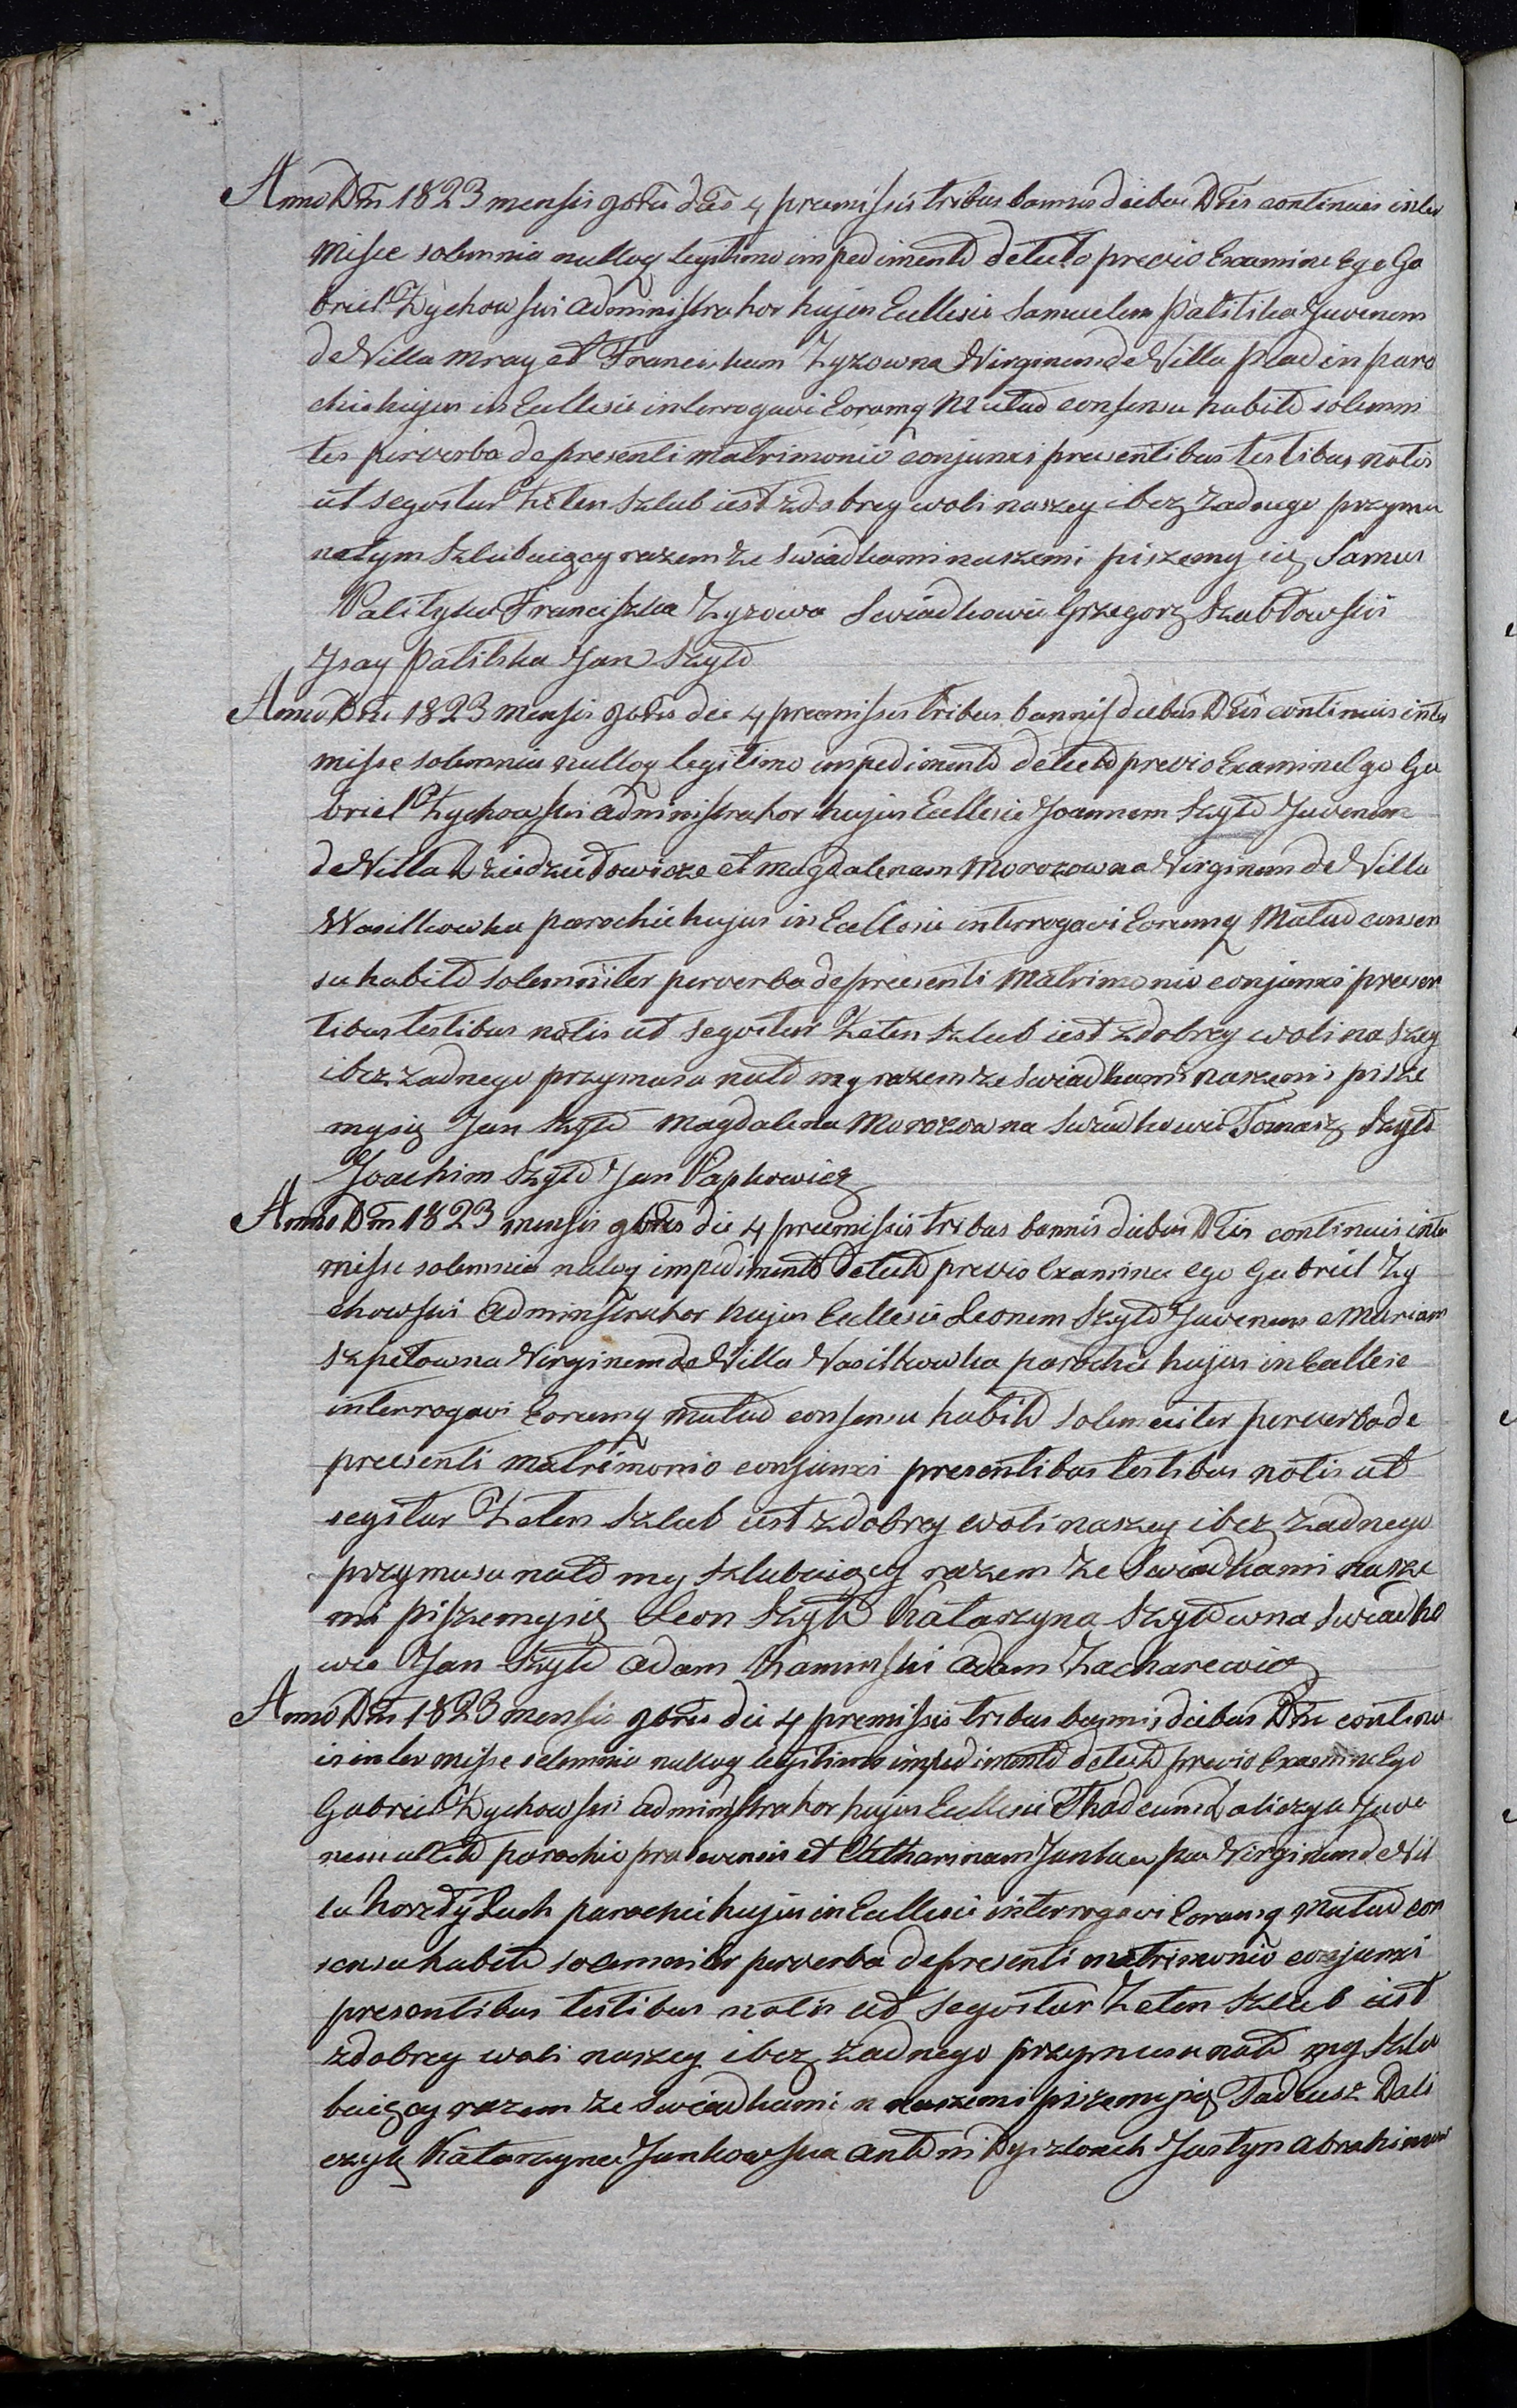 Anno Dni 1823 mensis 9bris die 4 premissis tribus bannis diebus Dnis continuis inter
misse solemnia nulloq legitimo impedimento detecto previo Examine Ego Ga
briel Zychowski Administrator hujus Ecclesie Samuelem Palitika Juvenem
de Villa Mray et Franciskam Zyzowna Virginem de Villa plad in paro
chie hujus in Ecclesie interrogavi Eorumq Mutuo consensu habito solemni
ter per verba de presenti matrimonio conjunxi presentibus testibus notis
ut seqvitur że ten szlub iest z dobrey woli naszey i bez żadnego przymu
na tym szlubuiący razem ze swiadkami naszemi piszemy się Samuel
Palityka Franciszka Zyzowa Swiadkowie Grzegorz Szabłowski
Jsay Palitska Jan Szyło
Anno Dni 1823 Mensis 9bris die 4 premissis tribus bannis diebus Dnis continuis inter
misse solemnia nulloq legitimo impedimento detecto previo Examine Ego Ga
briel Zychowski Administrator hujus Ecclesie Joannem Szyło Juvenem
de Villa Dziedziłowicze et Magdalenam Morozowna Virginem de Villa
Wasilkowka parochie hujus in Ecclesie interrogavi Eorumq Mutuo consen
su habito solemniter per verba de presenti Matrimonio conjunxi presen
tibus testibus notis ut seqvitur że ten szlub iest z dobrey woli naszey
i bez żadnego przymusu na to my razem ze swiadkami naszemi pisze
my się Jan Szyło Magdalena Morozowna Swiadkowie Tomasz Szyło
Joachim Szyło Jan Papkowicz
Anno Dni 1823 mensis 9bris die 4 premissis tribus bannis diebus Dnis continuis inter
misse solemnia nuloq impedimento detecto previo Examine ego Gabriel Zy
chowski Adminstrator hujus Ecclesie Leonem Szyło Juvenem e Mariam
Szpetowna Virginem de Villa Wasilkowka parochie hujus in Ecclesie
interrogavi Eorumq mutuo consensu habito solemniter per verba de
presenti matrimonio conjunxi presentibus testibus notis ut
seqitur że ten szlub iest z dobrey woli naszey i bez żadnego
przymusu na to my szlubuiący razem ze Swiadkami nasze
mi piszemy się Leon Szyło Katarzyna Szyłowna Swiadko
wie Jan Szyło Adam Kaminski Adam Zacharewicz
Anno Dni 1823 mensis 9bris die 4 premissis tribus bannis diebus Dni continu
is inter misse solemnia nulloq legitimo impedimento detecto previo Examine Ego
Gabriel Zychowski Administrator hujus Ecclesie Thadeum Daliczyk Juve
nem parochie et Catharinam Jankowska Virginem de Vil
la parochie hujus in Ecclesie interrogavi Eorumq Mutuo con
sensu habito solemniter per verba de presenti matrimonio conjunxi
presentibus testibus notis ut seqvitur że ten szlub iest
z dobrey woli naszey i bez żadnego przymusu na to my szlu
buiący razem ze swiadkami n naszemi piszemy się Tadeusz Dali
czyk Katarzyna Jankowska Antoni Justyn